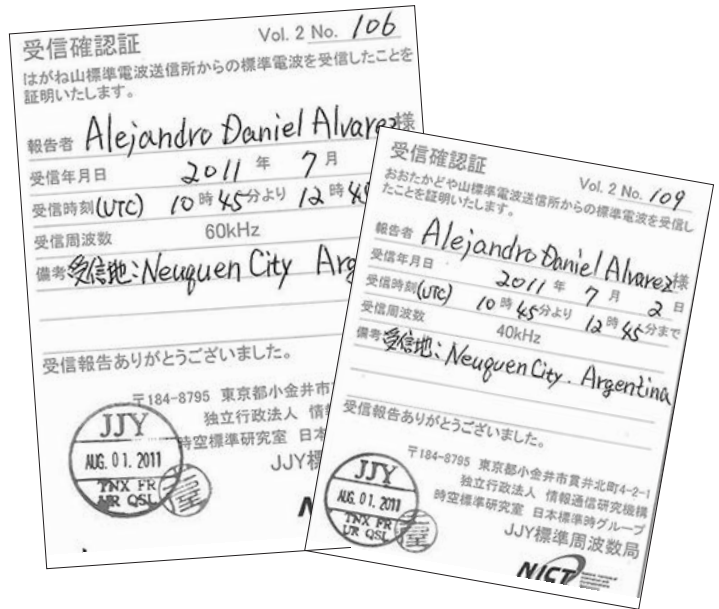 受信確認証 Vol. 2 No. 106
はがね山標準電波送信所からの標準電波を受信したことを
証明いたします。
報告者 Alejandro Daniel Alvarez様
受信年月日 2011 年 7 月
受信時刻(UTC) 10 時 45 分より 12 時 45
受信周波数 60kHz
備考 受信地:Neuquen City Arg
受信報告ありがとうございました。
〒184-8795 東京都小金井市
独立行政法人 情報
時空標準研究室 日本
JJY標
JJY
AUG. 01. 2011
TNX FR
UR QSL
受信確認証 Vol. 2 No. 109
おおたかどや山標準電波送信所からの標準電波を受信し
たことを証明いたします。
報告者 Alejandro Daniel Alvarez様
受信年月日 2011 年 7 月 2 日
受信時刻(UTC) 10 時 45 分より 12 時 45 分まで
受信周波数 40kHz
備考 受信地:Neuquen City. Argentina
受信報告ありがとうございました。
〒184-8795 東京都小金井市貫井北町4-2-1
独立行政法人 情報通信研究機構
時空標準研究室 日本標準時グループ
JJY標準周波数局
JJY
AUG. 01. 2011
TNX FR
UR QSL
NICT